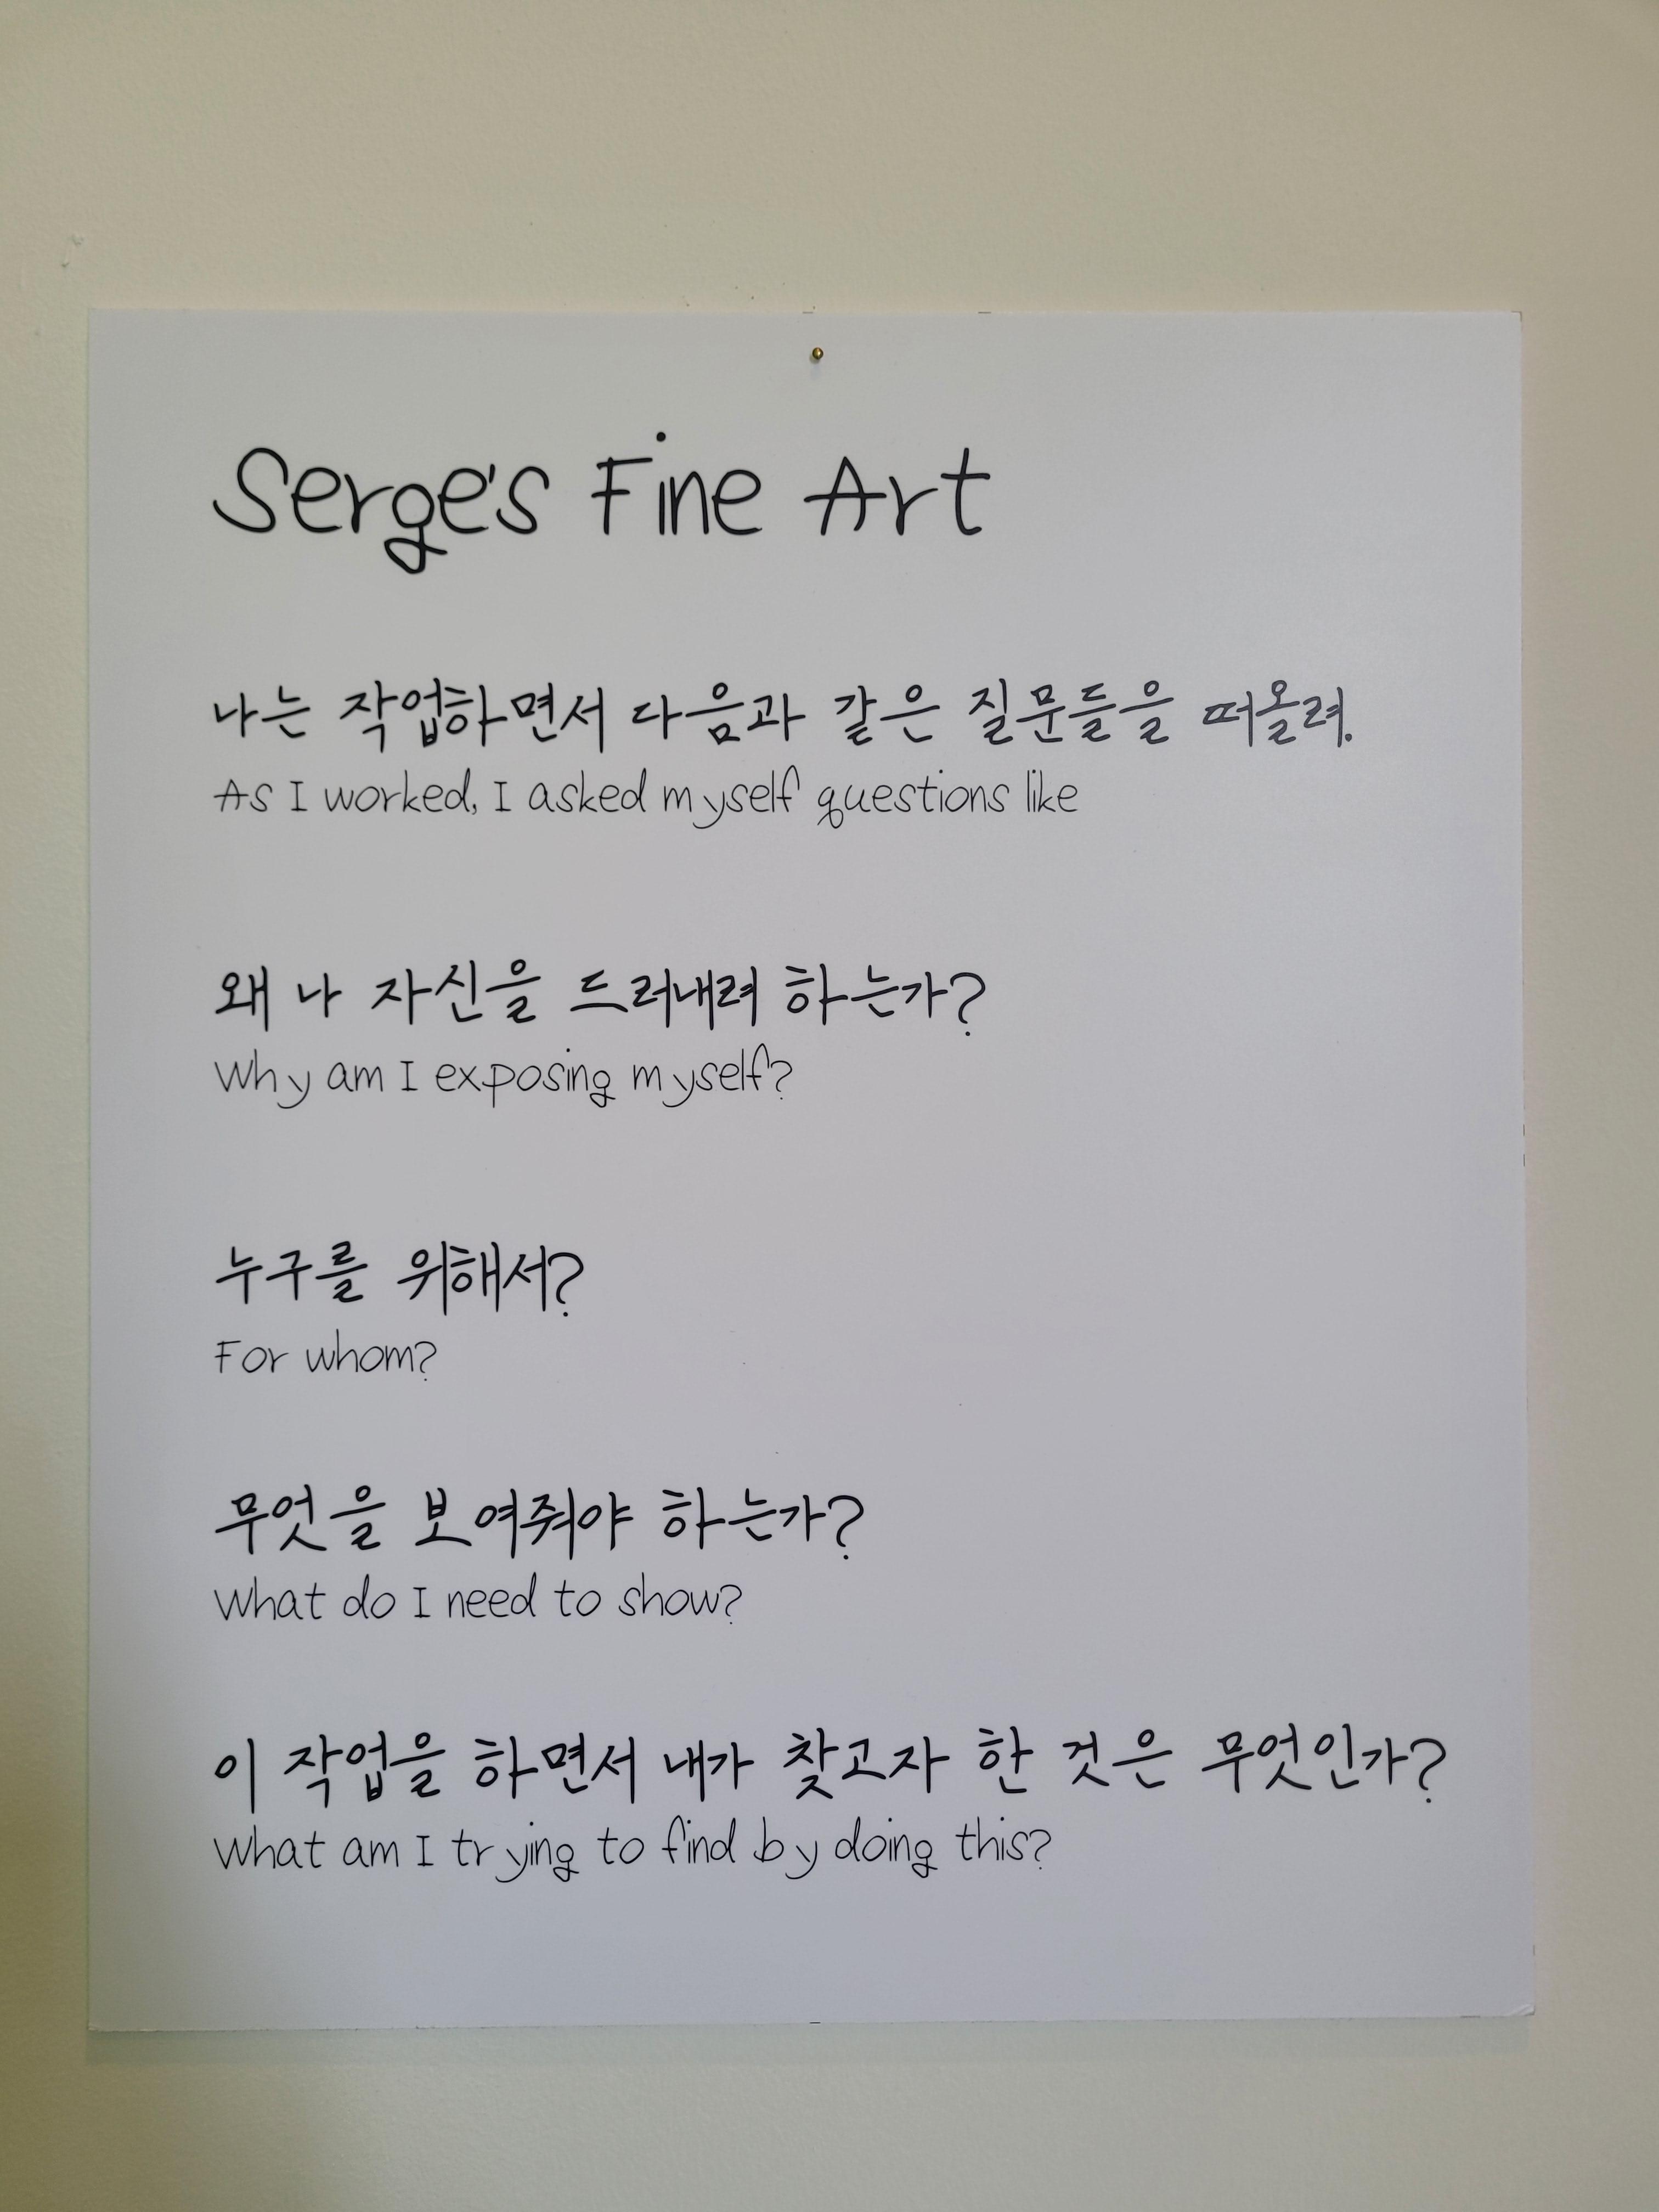 Serge's Fine Art
나는 작업하면서 다음과 같은 질문들을 떠올려.
As I worked, I asked myself questions like
왜 나 자신을 드러내려 하는가?
Why am I exposing myself?
누구를 위해서?
For whom?
무엇을 보여줘야 하는가?
What do I need to show?
이 작업을 하면서 내가 찾고자 한 것은 무엇인가?
What am I trying to find by doing this?